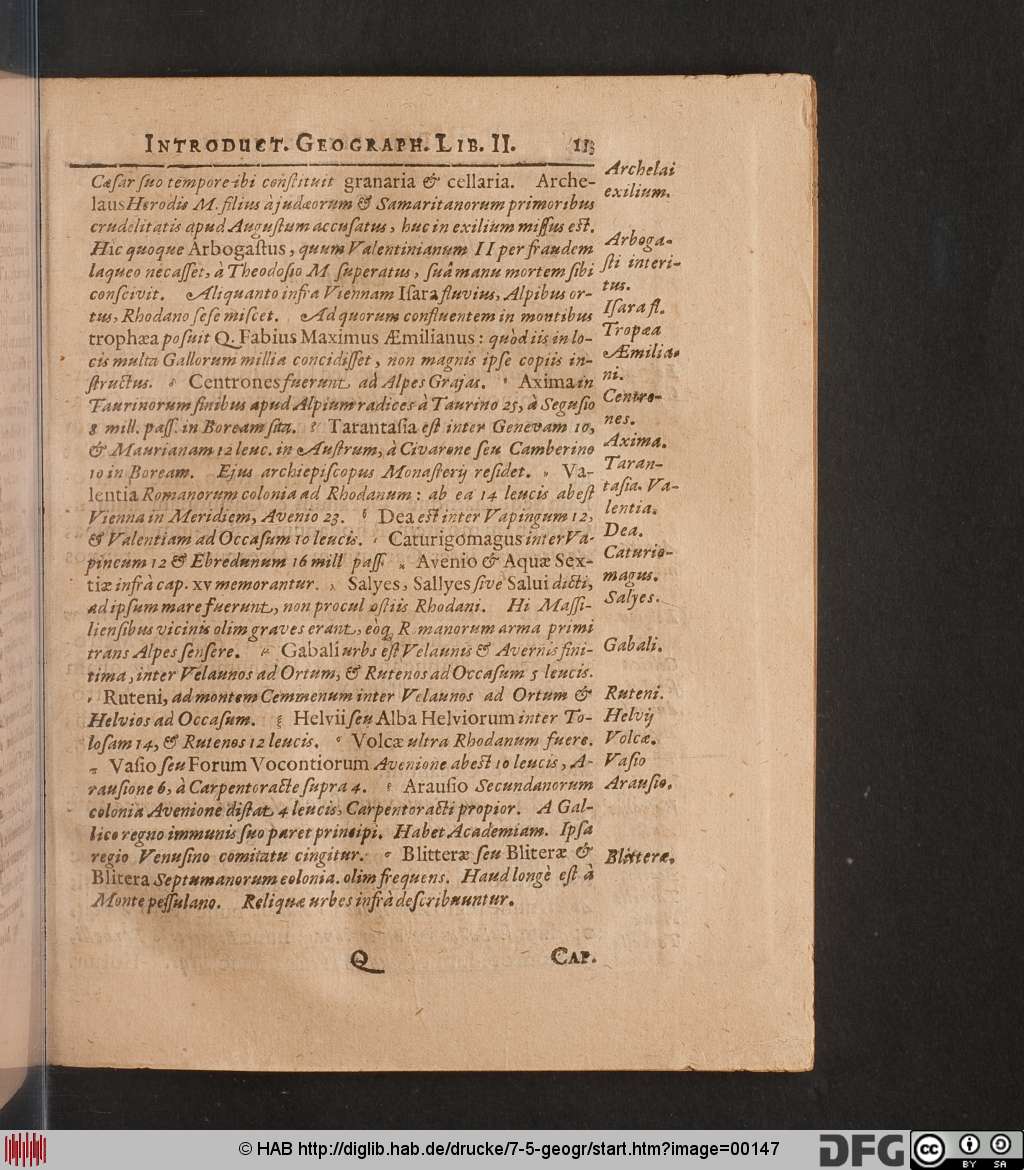 INTRODUCT. GEOGRAPH. LIB. II.
Cæſar ſuo tempore ibi conſtituit granaria & cellaria. Arche-
laus Herodis M. filius à judæorum & Samaritanorum primoribus
crudelitatis apud Auguſtum accuſatus, huc in exilium miſſus eſt.
Hic quoque Arbogaſtus, quum Valentinianum II per fraudem
laqueo necaſſet, à Theodoſio M. ſuperatus, ſuâ manu mortem ſibi
conſcivit. Aliquanto infra Viennam Iſara fluvius, Alpibus or-
tus, Rhodano ſeſe miſcet. Ad quorum confluentem in montibus
trophæa poſuit Q. Fabius Maximus Æmilianus: quòd iis in lo-
cis multa Gallorum millia concidiſſet, non magnis ipſe copiis in-
ſtructus. Centrones fuerunt ad Alpes Grajas. Axima in
Taurinorum finibus apud Alpium radices à Taurino 25, à Seguſio
8 mill. paſſ. in Boream ſita. Tarantaſia eſt inter Genevam 10,
& Maurianam 12 leuc. in Auſtrum, à Civarone ſeu Camberino
10 in Boream. Ejus archiepiſcopus Monaſterij reſidet. Va-
lentia Romanorum colonia ad Rhodanum: ab ea 14 leucis abeſt
Vienna in Meridiem, Avenio 23. Dea eſt inter Vapingum 12,
& Valentiam ad Occaſum 10 leucis. Caturigomagus inter Va-
pincum 12 & Ebredunum 16 mill paſſ. Avenio & Aquæ Sex-
tiæ infrà cap. xv memorantur. Salyes, Sallyes ſive Salui dicti,
ad ipſum mare fuerunt, non procul oſtiis Rhodani. Hi Maſſi-
lienſibus vicinis olim graves erant, eòq R manorum arma primi
trans Alpes ſenſere. Gabali urbs eſt Velaunis & Avernis fini-
tima, inter Velaunos ad Ortum, & Rutenos ad Occaſum 5 leucis.
Ruteni, ad montem Cemmenum inter Velaunos ad Ortum &
Helvios ad Occaſum. Helvii ſeu Alba Helviorum inter To-
loſam 14, & Rutenos 12 leucis. Volcæ ultra Rhodanum fuere.
Vaſio ſeu Forum Vocontiorum Avenione abeſt 10 leucis, A-
rauſione 6, à Carpentoracte ſupra 4. Arauſio Secundanorum
colonia Avenione diſtat 4 leucis, Carpentoracti propior. A Gal-
lico regno immunis ſuo paret principi. Habet Academiam. Ipſa
regio Venuſino comitatu cingitur. Blitteræ ſeu Bliteræ &
Blitera Septumanorum colonia. olim frequens. Haud longè eſt à
Monte peſſulano. Reliquæ urbes infrà deſcribuuntur.
Q CAP.
Archelai
exilium.
Arboga-
ſti interi-
tus.
Iſara fl.
Tropæa
Æmilia-
ni.
Centro-
nes.
Axima.
Taran-
taſia. Va-
lentia.
Dea.
Caturio-
magus.
Salyes.
Gabali.
Ruteni.
Helvij
Volcæ.
Vaſio
Arauſio.
Blitteræ.
© HAB http://diglib.hab.de/drucke/7-5-geogr/start.htm?image=00147
DFG
cc BY SA